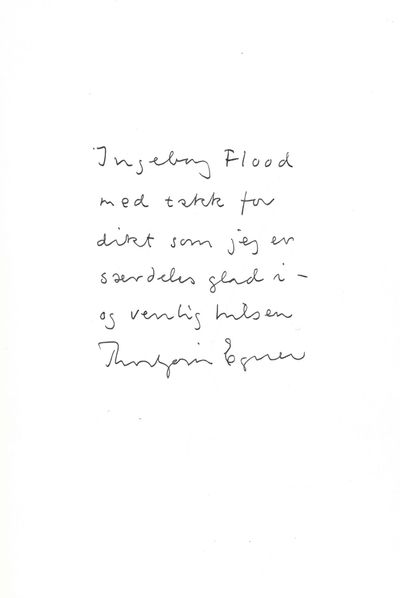 Ingeborg Flood
med takk for
dikt som jeg er
særdeles glad i –
og vennlig hilsen
Thorbjørn Egner